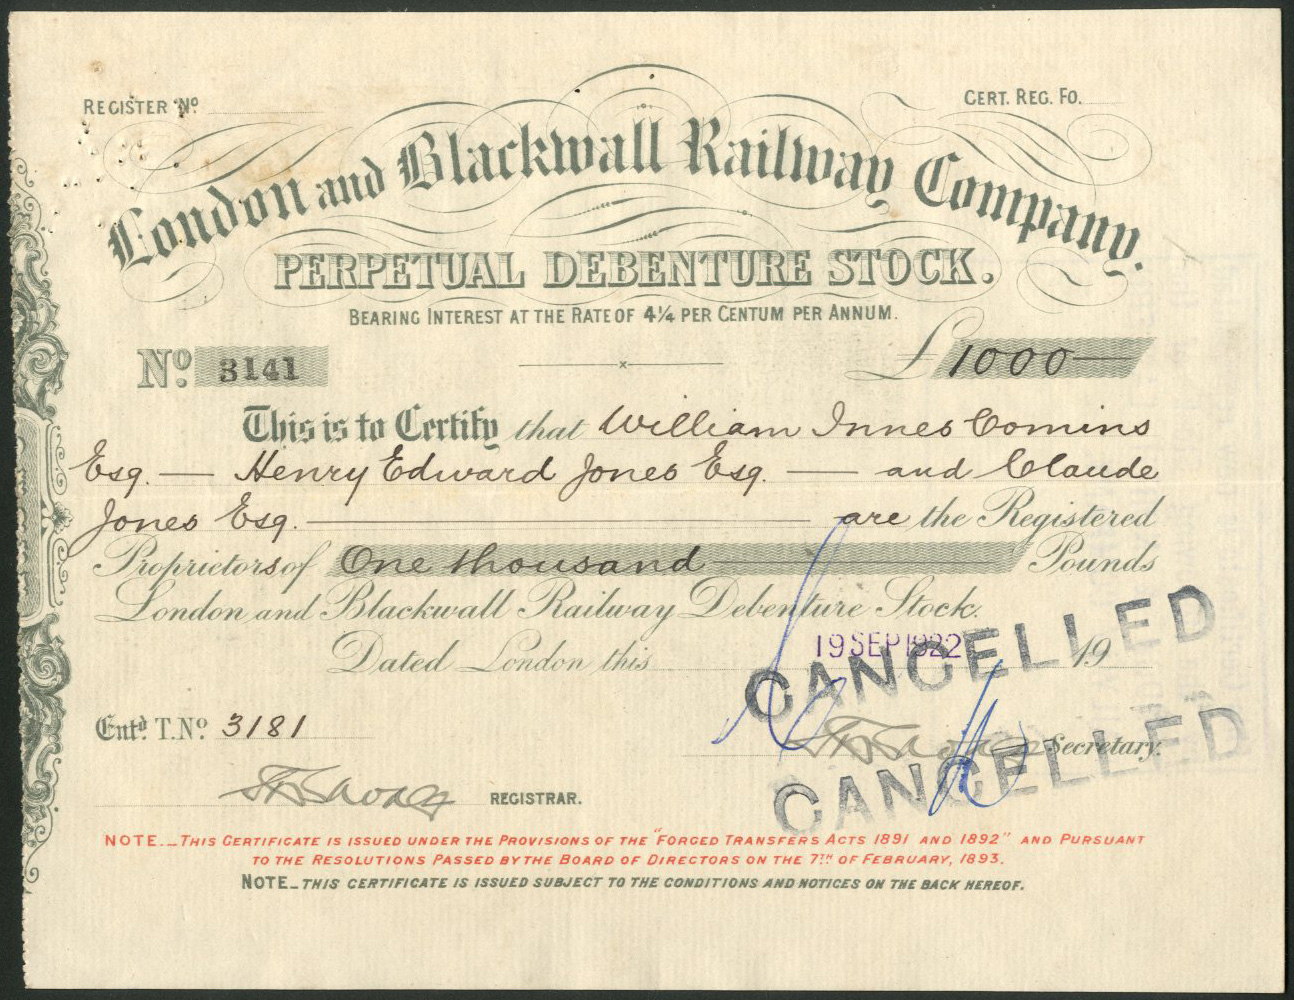 REGISTER Nº
CERT. REG. FO.
London and Blackwall Railway Company.
PERPETUAL DEBENTURE STOCK.
BEARING INTEREST AT THE RATE OF 4¼ PER CENTUM PER ANNUM.
Nº. 3141
£1000
This is to Certify that William Innes Comins
Esq. — Henry Edward Jones Esq. — and Claude
Jones Esq. — are the Registered
Proprietors of One thousand — Pounds
London and Blackwall Railway Debenture Stock.
Dated London this 19 SEP 1922 19
CANCELLED
Entd. T. Nº. 3181
Secretary.
CANCELLED
REGISTRAR.
NOTE._THIS CERTIFICATE IS ISSUED UNDER THE PROVISIONS OF THE "FORGED TRANSFERS ACTS 1891 AND 1892" AND PURSUANT
TO THE RESOLUTIONS PASSED BY THE BOARD OF DIRECTORS ON THE 7TH OF FEBRUARY, 1893.
NOTE_THIS CERTIFICATE IS ISSUED SUBJECT TO THE CONDITIONS AND NOTICES ON THE BACK HEREOF.